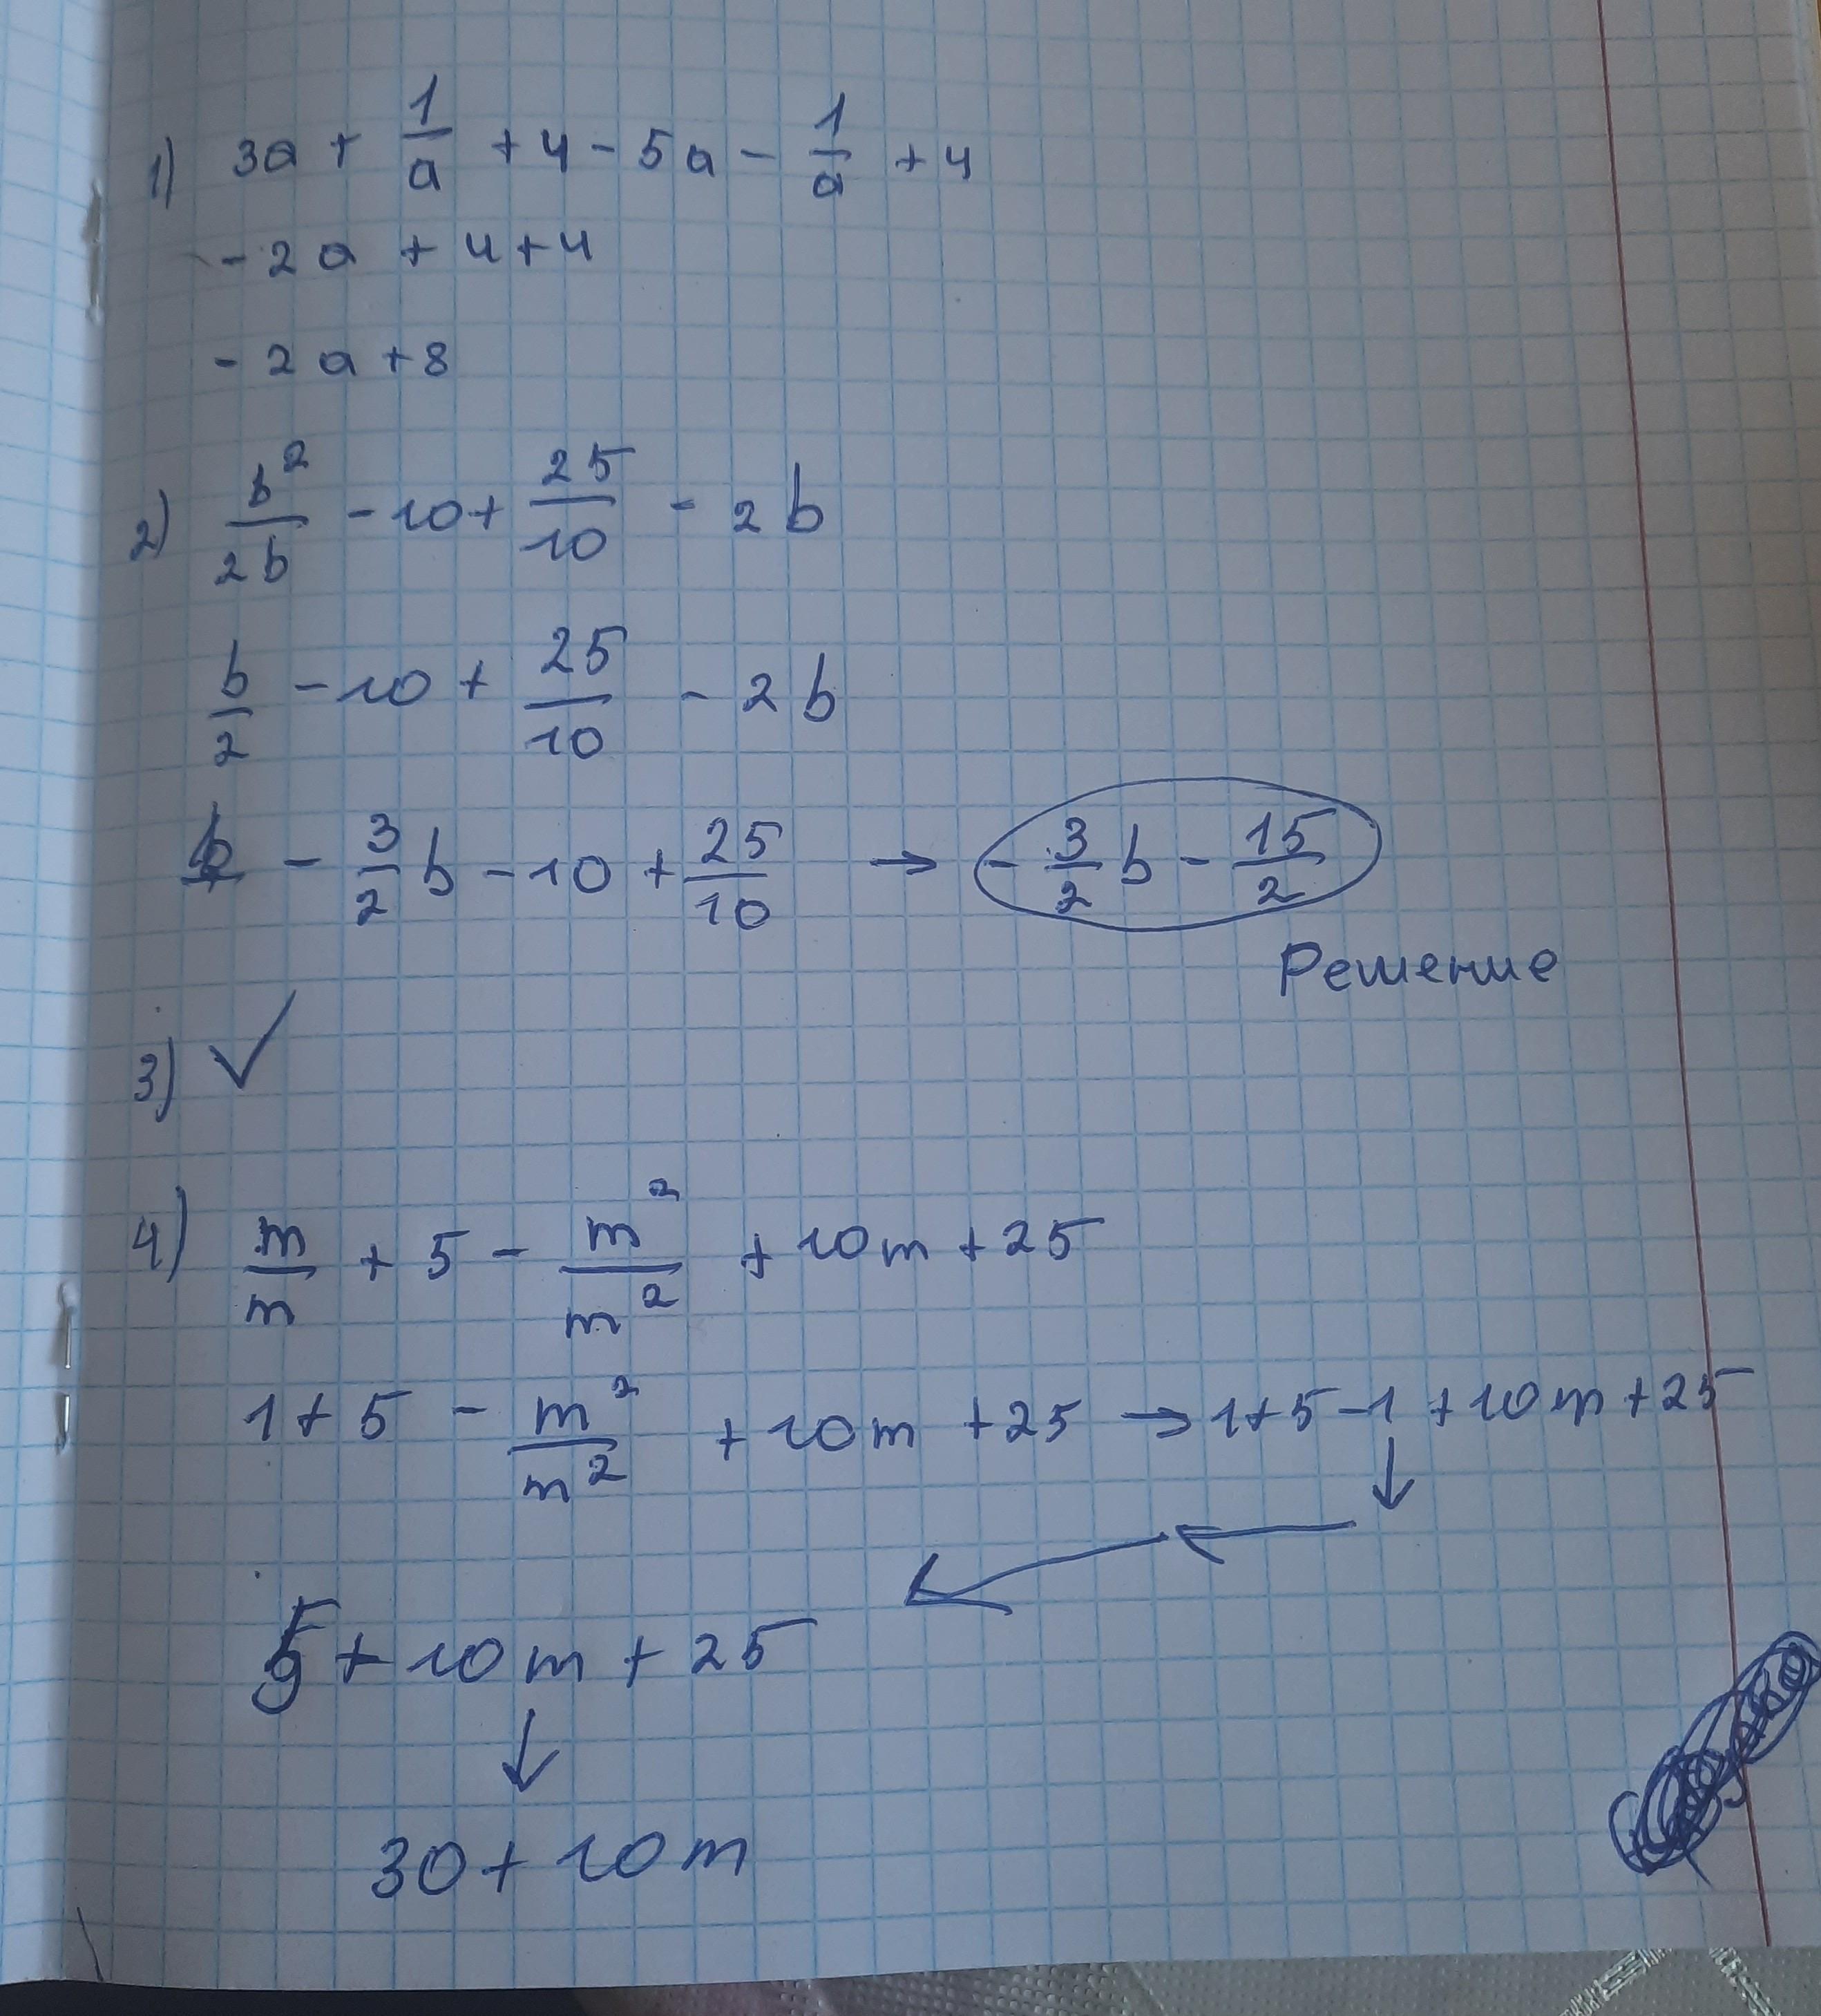 1) 3a + 1/a + 4 - 5a - 1/a + 4
- 2a + 4 + 4
- 2a + 8
2) b²/2b - 10 + 25/10 - 2b
b/2 - 10 + 25/10 - 2b
- 3/2 b - 10 + 25/10 → - 3/2 b - 15/2
Решение
3) ✓
4) m/m + 5 - m²/m² + 10m + 25
1 + 5 - m²/m² + 10m + 25 → 1 + 5 - 1 + 10m + 25
5 + 10m + 25
30 + 10m